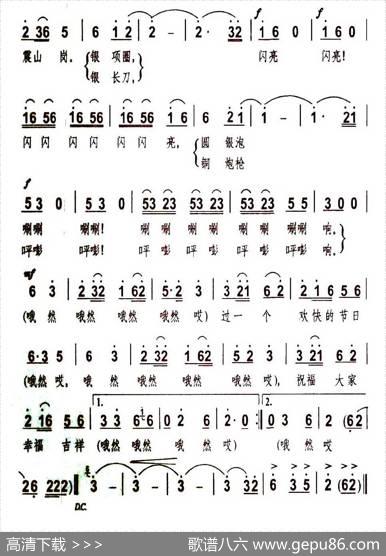 2 36 5 | 6 12 | 2 - | 2· 32 | 1 6 0 | 1 6 0 |
震山 岗, {银 项圈, 闪亮 闪亮!
{银 长刀,
16 56 16 56 | 16 56 1 6 | 6 21 | 1 - | 1· 21 |
闪 闪 闪 闪 闪 闪 亮, {圆 银泡
{铜 炮枪
f
53 0 | 53 0 | 53 23 53 23 | 53 23 5 5 | 53 0 |
唰唰 唰唰! 唰 唰 唰 唰 唰唰 响,
呯嘭 呯嘭! 呯 嘭 呯 嘭 呯嘭 响。
mf
6 3 | 2 32 1 62 | 5·2 3 | 3 21 6 2 | 2 1 6 5 6 |
(哦 哦然 哦然 哦然 哎) 过 一 个 欢快的 节日
6·3 5 | 6 2 | 2 32 1 62 | 5·2 3 | 3 21 6 2 |
(哦然 哎, 哦 然 哦然 哦然 哦然 哎), 祝福 大家
1. 2.
2 16 5 6 | 3 3 6 6 | 0 2 6 | 2·0 :| 0 3 6 | 2 (62 |
幸福 吉祥 (哦然 哦然 哦然 哎) (哦然 哎
26 222) | 3 - | 3 - | 3 - | 3 - | 6 3 5 6 | 2 (62) |
D.C.
高清下载 >>>
歌谱八六 www.gepu86.com